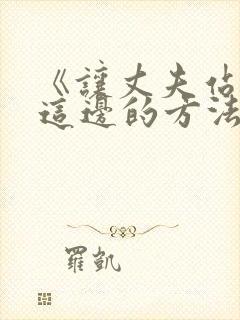 《讓丈夫站
這邊的方法
羅凱